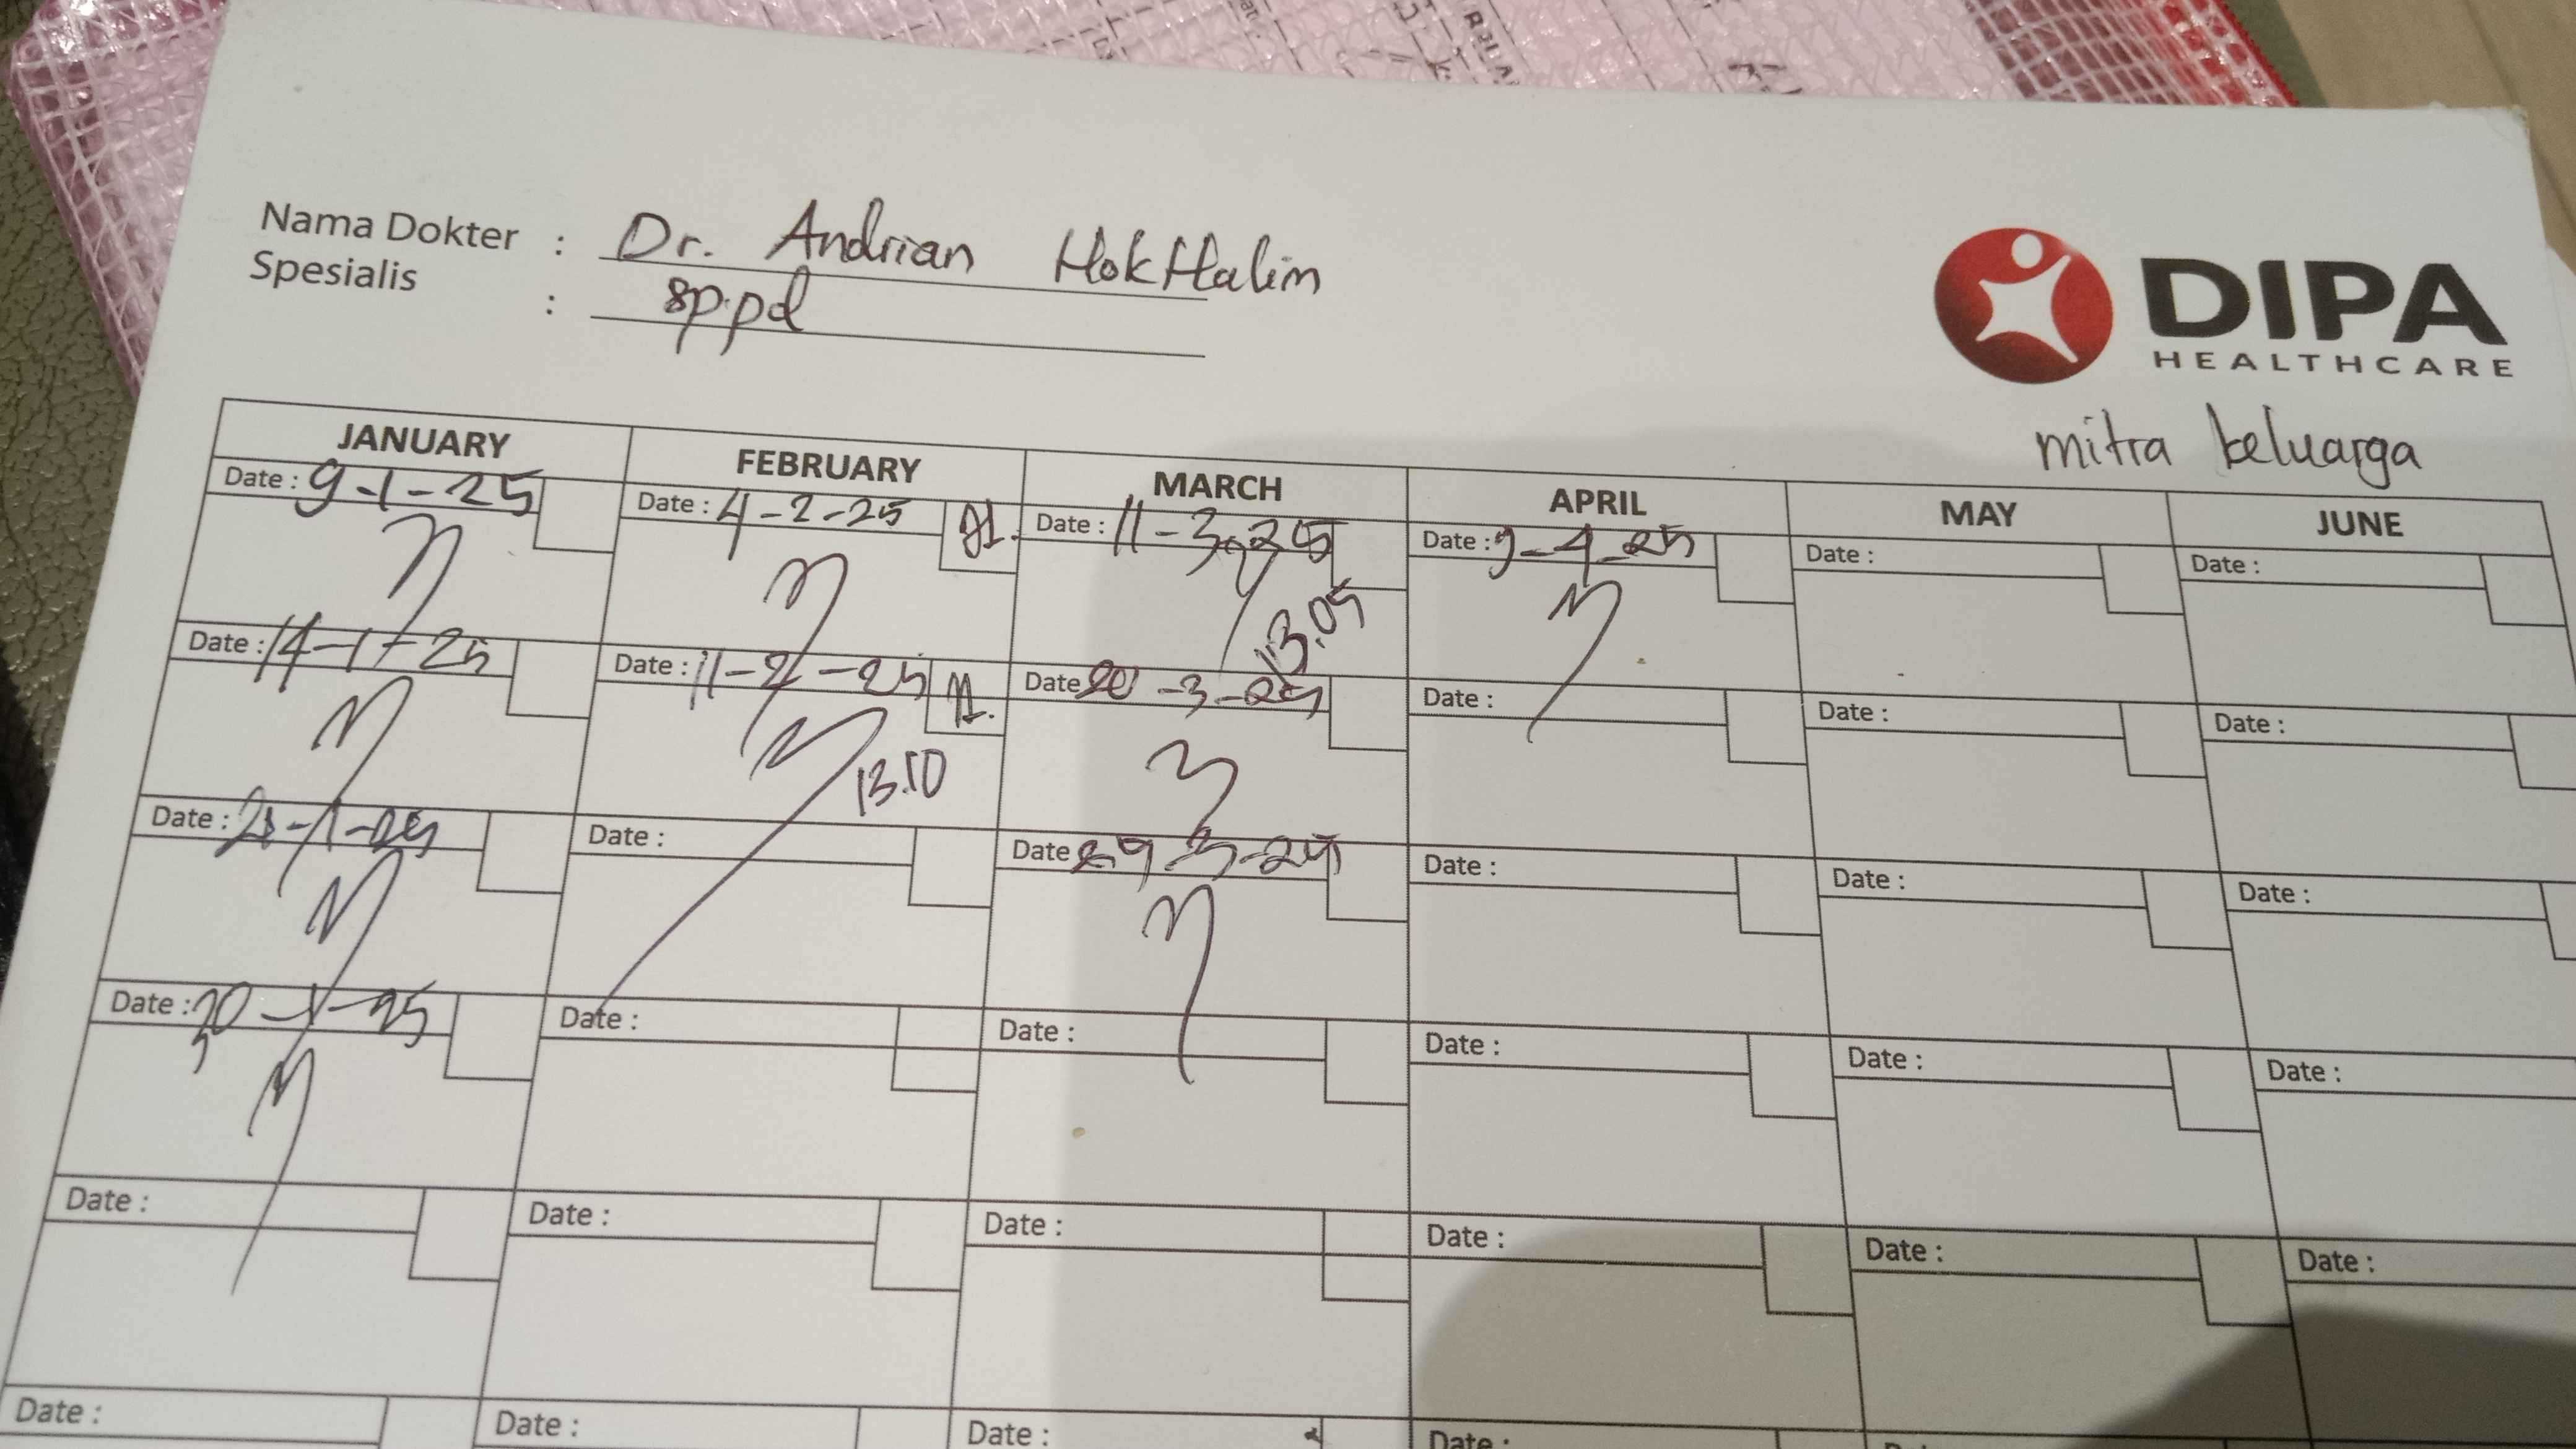 Nama Dokter : Dr. Andrian HokHalim
Spesialis : sp.pd
DIPA
HEALTHCARE
mitra keluarga
JANUARY FEBRUARY MARCH APRIL MAY JUNE
Date : 9-1-25 Date : 4-2-25 Date : 11-3-25 Date : 9-4-25 Date : Date :
13.05
Date : 14-1-25 Date : 11-2-25 Date 20-3-25 Date : Date : Date :
13.10
Date : 21-1-25 Date : Date 29-3-25 Date : Date : Date :
Date : 30-1-25 Date : Date : Date : Date : Date :
Date : Date : Date : Date : Date : Date :
Date : Date : Date : Date :